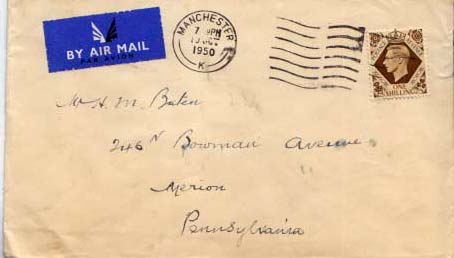 BY AIR MAIL
PAR AVION
MANCHESTER
7 PM
1950
K
ONE
SHILLING
Mr H. M. Baten
246 N Bowman Avenue
Merion
Pennsylvania